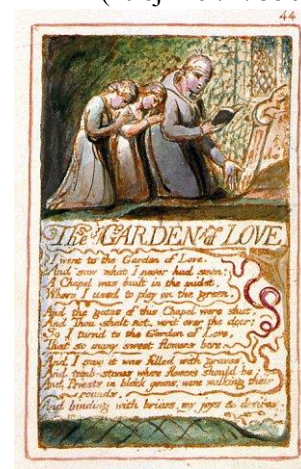 44
The GARDEN of LOVE
I went to the Garden of Love.
And saw what I never had seen:
A Chapel was built in the midst,
Where I used to play on the green.
And the gates of this Chapel were shut,
And Thou shalt not, writ over the door;
So I turn'd to the Garden of Love,
That so many sweet flowers bore.
And I saw it was filled with graves,
And tomb-stones where flowers should be:
And Priests in black gowns, were walking their
rounds,
And binding with briars, my joys & desires.